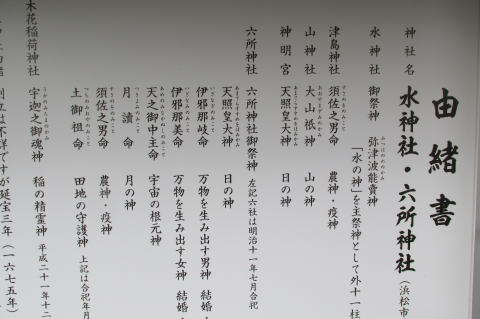 由緒書
神社名 水神社・六所神社(浜松市
水神社 御祭神 弥津波能売神
「水の神」を主祭神として外十一柱
津島神社 須佐之男命 農神・疫神
山神社 大山祇神 山の神
神明宮 天照皇大神 日の神
六所神社 六所神社御祭神 左記六社は明治十一年七月合祀
天照皇大神 日の神
伊邪那岐命 万物を生み出す男神 結婚・
伊邪那美命 万物を生み出す女神 結婚・
天之御中主命 宇宙の根元神
月讀命 月の神
須佐之男命 農神・疫神
土御祖命 田地の守護神 上記は合祀年月
木花稲荷神社 宇迦之御魂神 稲の精霊神 平成二十一年十二
創立は不詳ですが延宝三年(一六七五年)